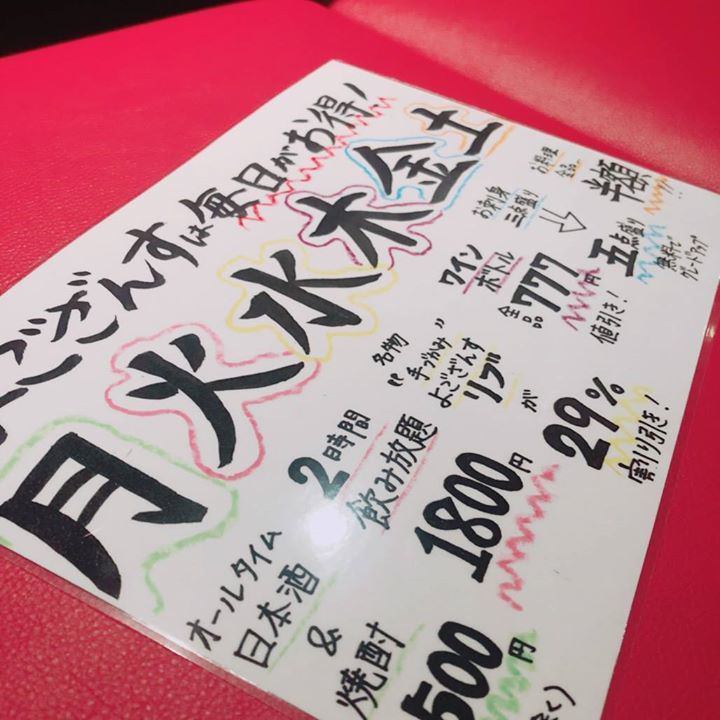 よござんすは毎日がお得!
月
オールタイム
日本酒
&
焼酎
500円
火
2時間
飲み放題
1800円
水
名物
"手づかみ"
よござんす
リブ
が
29%
割り引き!
木
ワイン
ボトル
全品
777円
値引き!
金
お刺身
三点盛り
↓
五点盛り
無料で
グレードアップ
土
お料理
全品
半額!!